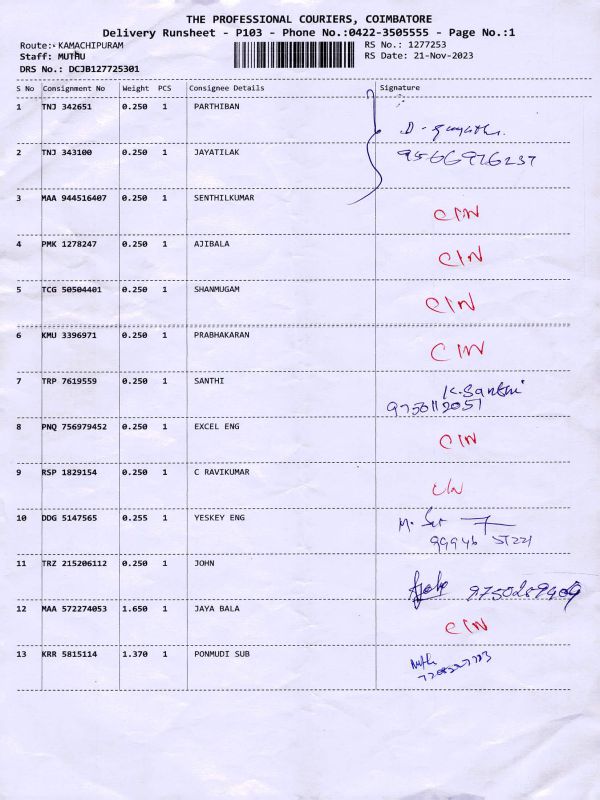 THE PROFESSIONAL COURIERS, COIMBATORE
Delivery Runsheet - P103 - Phone No.:0422-3505555 - Page No.:1
Route: KAMACHIPURAM RS No.: 1277253
Staff: MUTHU RS Date: 21-Nov-2023
DRS No.: DCJB127725301
S No Consignment No Weight PCS Consignee Details Signature
1 TNJ 342651 0.250 1 PARTHIBAN
2 TNJ 343100 0.250 1 JAYATILAK 9566976237
3 MAA 944516407 0.250 1 SENTHILKUMAR CIN
4 PMK 1278247 0.250 1 AJIBALA CIN
5 TCG 50504401 0.250 1 SHANMUGAM CIN
6 KMU 3396971 0.250 1 PRABHAKARAN CIN
7 TRP 7619559 0.250 1 SANTHI K.Santhi
9750112051
8 PNQ 756979452 0.250 1 EXCEL ENG CIN
9 RSP 1829154 0.250 1 C RAVIKUMAR
10 DDG 5147565 0.255 1 YESKEY ENG
99946 51221
11 TRZ 215206112 0.250 1 JOHN 9750289409
12 MAA 572274053 1.650 1 JAYA BALA CIN
13 KRR 5815114 1.370 1 PONMUDI SUB